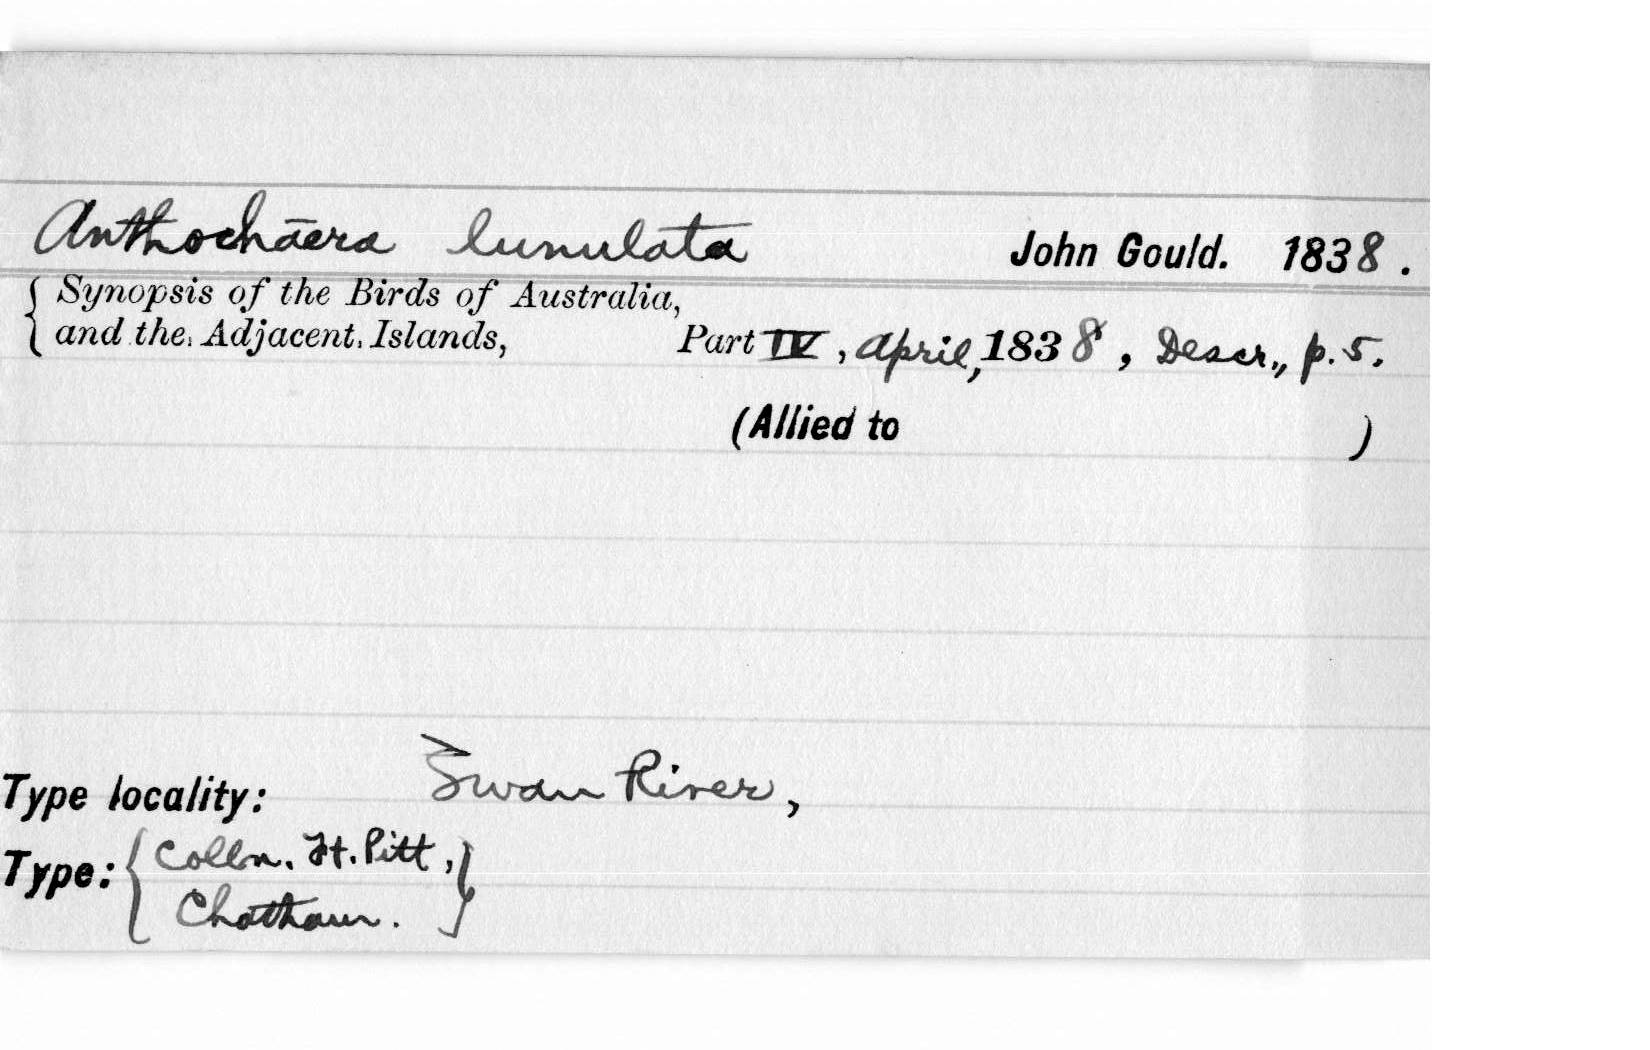 Anthochāera lunulata John Gould. 1838.
{ Synopsis of the Birds of Australia,
and the Adjacent Islands, Part IV, April, 1838, Descr., p. 5.
(Allied to )
Type locality: Swan River,
Type: { Colln. Ft. Pitt, }
Chatham.